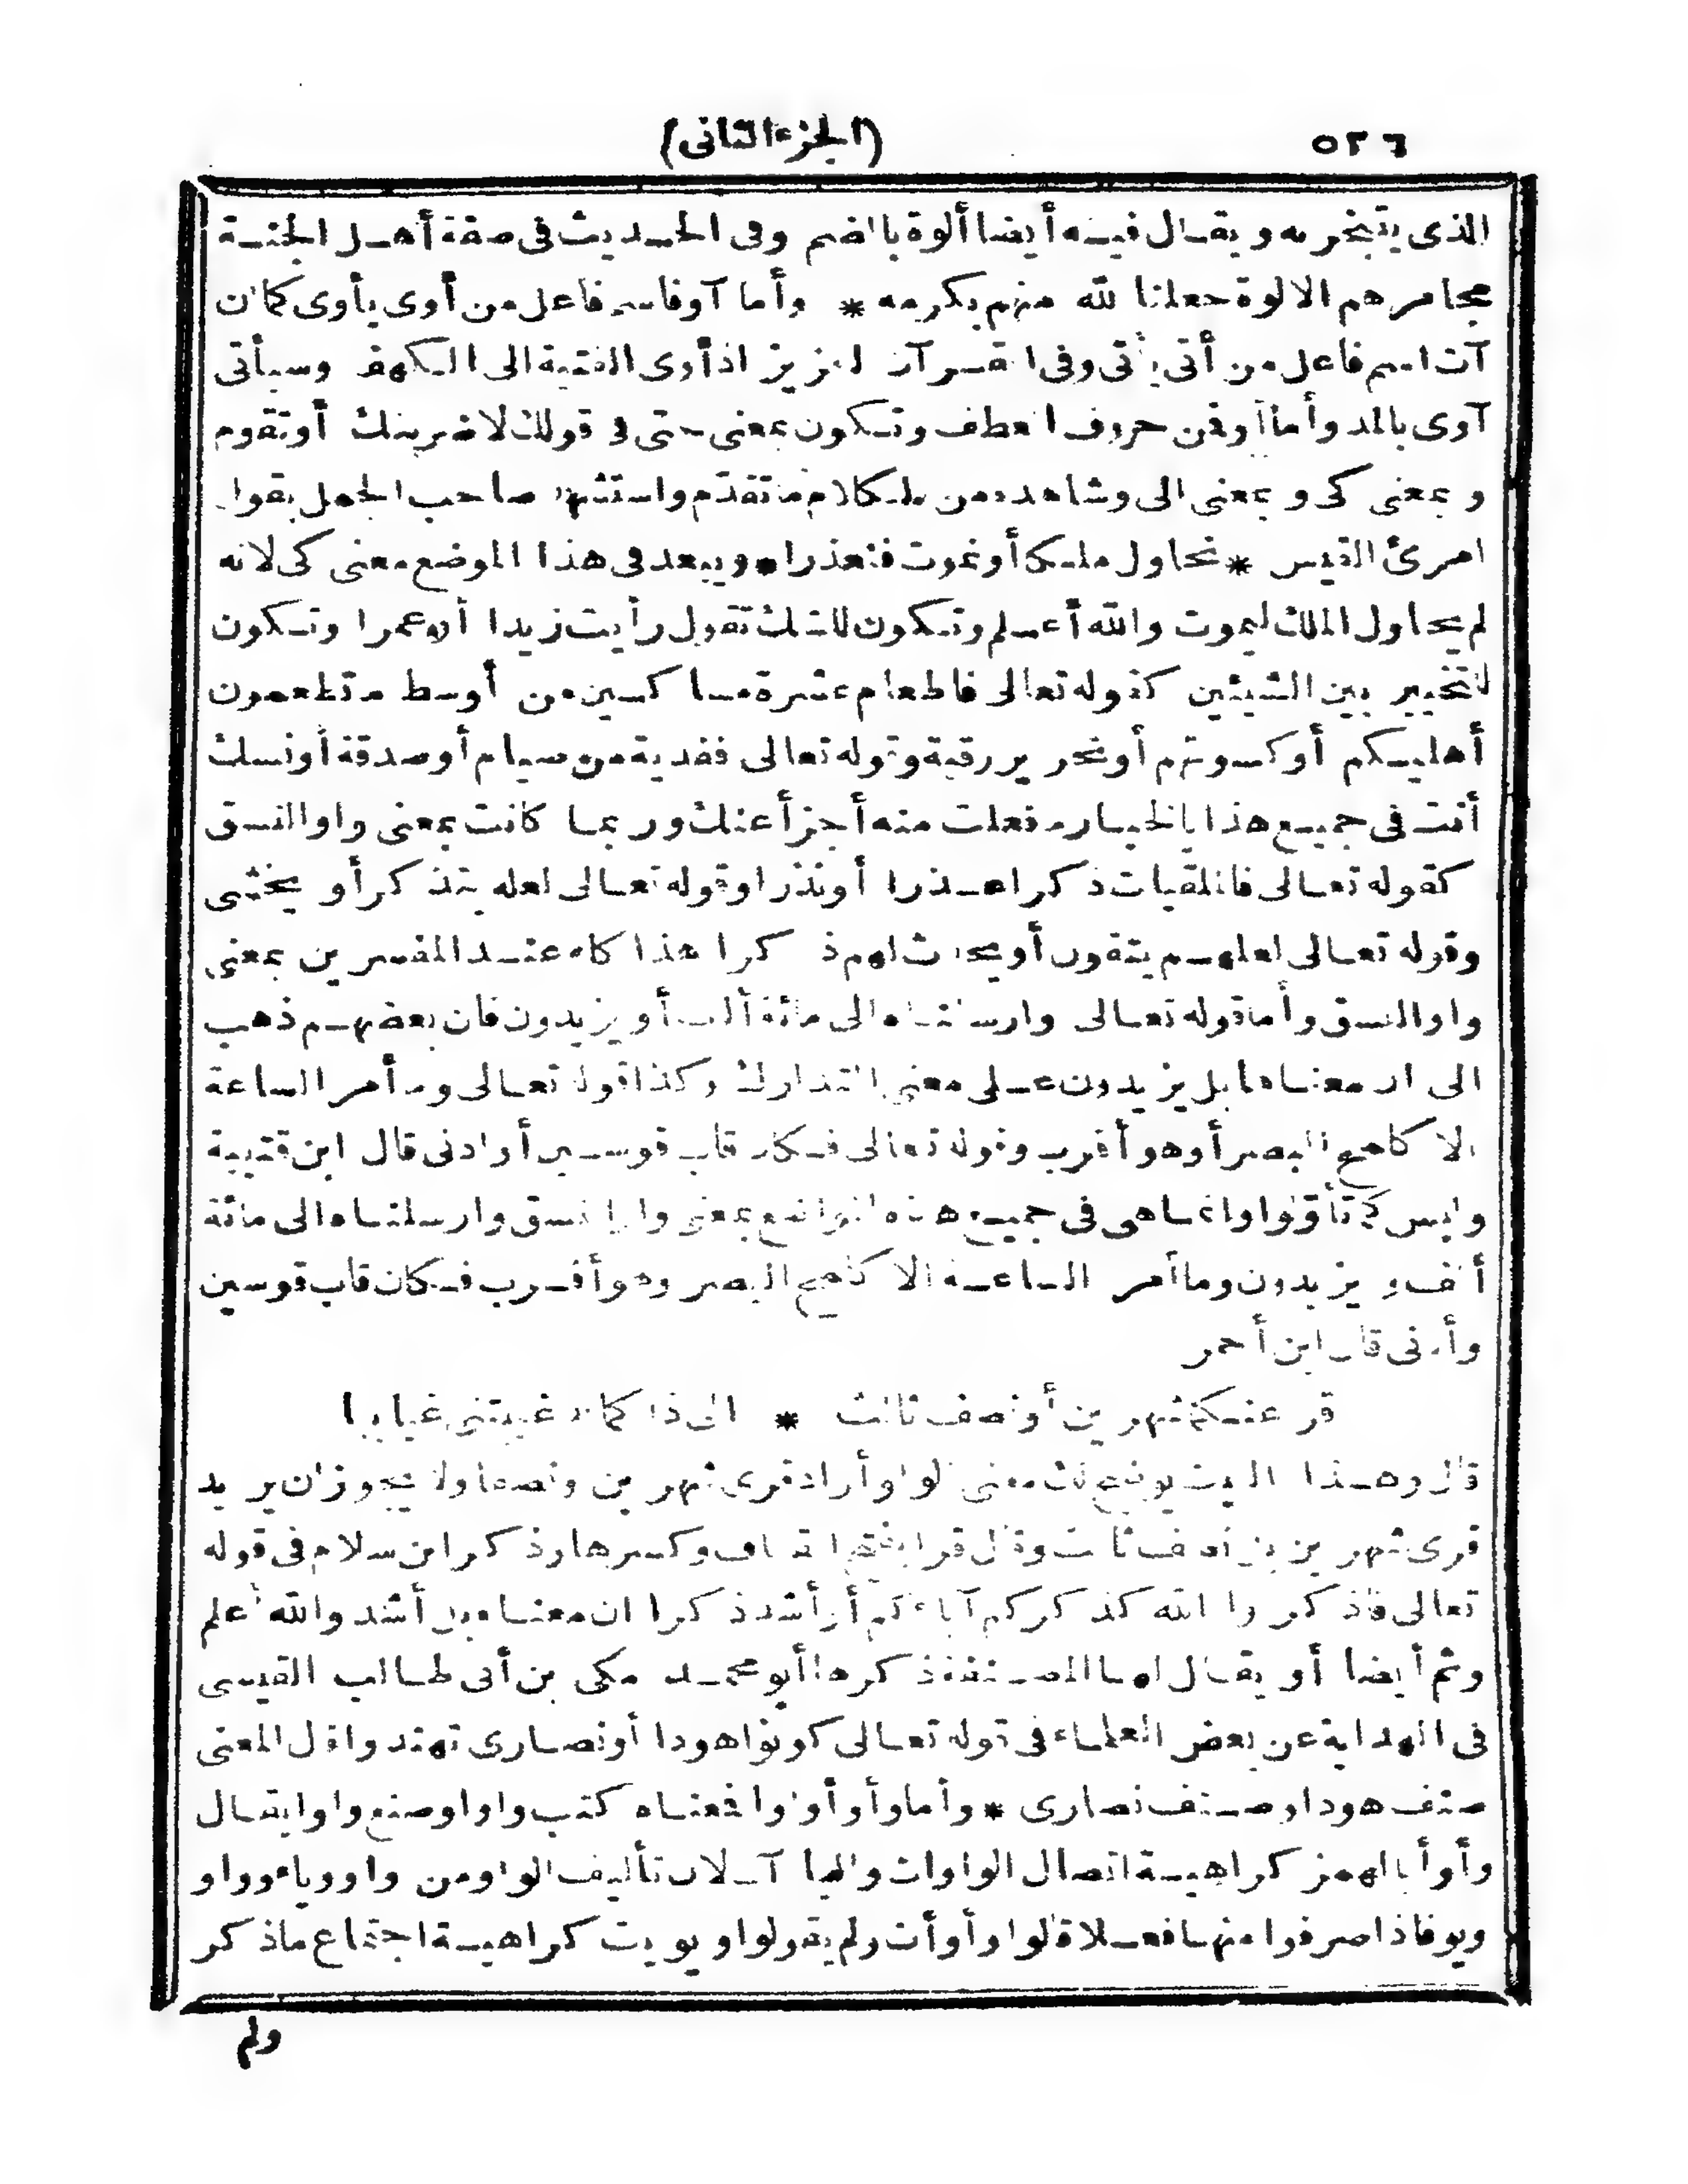 ٥٢٦ (الجزء الثانى)
الذى يتبخر به ويقال فيه أيضا ألوة بالضم وفى الحديث فى صفة أهل الجنة
مجامرهم الالوة جعلنا الله منهم بكرمه * وأما آوفاسم فاعل من أوى يأوى كما ان
آت اسم فاعل من أتى يأتى وفى القرآن العزيز اذ أوى الفتية الى الكهف وسيأتى
آوى بالمد وأما أوفمن حروف العطف وتكون بمعنى حتى فى قولك لاضربنك أو تقوم
وبمعنى كى وبمعنى الى وشاهده من الكلام ما تقدم واستشهد صاحب الجمل بقول
امرئ القيس * نحاول ملكا أو نموت فنعذرا * ويبعد فى هذا الموضع معنى كى لانه
لم يحاول الملك ليموت والله أعلم وتكون للشك تقول رأيت زيدا أو عمرا وتكون
للتخيير بين الشيئين كقوله تعالى فاطعام عشرة مساكين من أوسط ما تطعمون
أهليكم أو كسوتهم أو تحرير رقبة وقوله تعالى ففدية من صيام أو صدقة أو نسك
أنت فى جميع هذا بالخيار ما فعلت منه أجزأ عنك وربما كانت بمعنى واو النسق
كقوله تعالى فالملقيات ذكرا عذرا أو نذرا وقوله تعالى لعله يتذكر أو يخشى
وقوله تعالى لعلهم يتقون أو يحدث لهم ذكرا هذا كله عند المفسرين بمعنى
واو النسق وأما قوله تعالى وارسلناه الى مائة ألف أو يزيدون فان بعضهم ذهب
الى ان معناها بل يزيدون على معنى التدارك وكذا قوله تعالى وما أمر الساعة
الا كلمح البصر أو هو أقرب وقوله تعالى فكان قاب قوسين أو ادنى قال ابن قتيبة
وليس كما تأولوا وانما هى فى جميع هذه المواضع بمعنى واو النسق وارسلناه الى مائة
ألف ويزيدون وما أمر الساعة الا كلمح البصر وهو أقرب فكان قاب قوسين
وأدنى قال ابن أحمر
شهرين أو نصف ثالث * الى غيابيا
قال وهذا البيت يوضح لك معنى الواو وأراد قرى شهرين ونصفا ولا يجوز ان يريد
قرى شهرين بل نصف ثالث وقال قرا بفتح القاف وكسرها وذكر ابن سلام فى قوله
تعالى فاذكروا الله كذكركم آباءكم أو أشد ذكرا ان معناه بل أشد والله أعلم
وثم أيضا أو يقال لها المصنفة ذكرها أبو محمد مكى بن أبى طالب القيسى
فى الهداية عن بعض العلماء فى قوله تعالى كونوا هودا أو نصارى تهتدوا قال المعنى
صنف هودا وصنف نصارى * وأما وأوأ واوا فمعناه كتب واوا وصنع واوا يقال
وأوأ بالهمز كراهية اتصال الواوات والياآت لان تأليف الواو من واو وياء وواو
ويو فاذا صرفوا منها فعلا قالوا وأوأت ولم يقولوا ويويت كراهية اجتماع ما ذكر
ولم